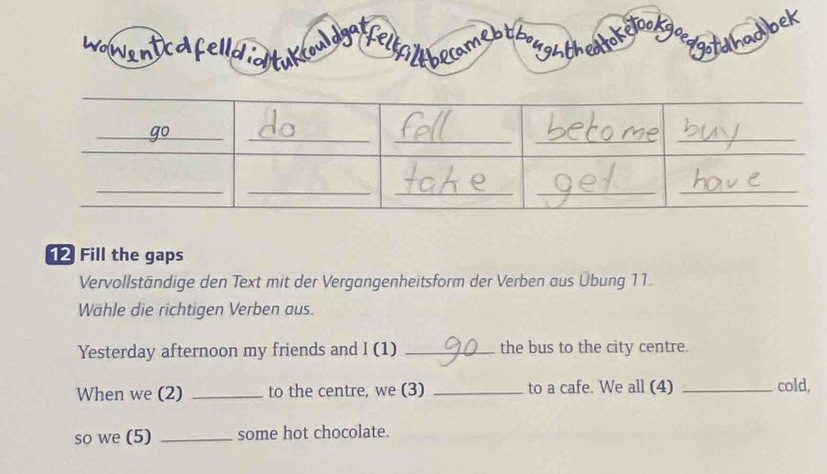 wowenticdfelldidtukcouldgatfeltfiltbecamebtboughthedtoketookgoedgotdhadbek
go do fell become buy
take get have
12 Fill the gaps
Vervollständige den Text mit der Vergangenheitsform der Verben aus Übung 11.
Wähle die richtigen Verben aus.
Yesterday afternoon my friends and I (1) go the bus to the city centre.
When we (2) ________ to the centre, we (3) ________ to a cafe. We all (4) ________ cold,
so we (5) ________ some hot chocolate.